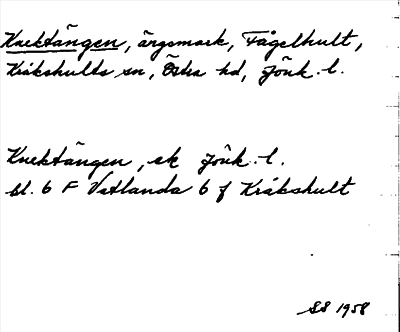 Knektängen, ängsmark, Fågelhult,
Kråkshults sn, Östra hd, Jönk. l.
Knektängen, ek Jönk. l.
bl. 6 F Vetlanda 6 f Kråkshult
SS 1958